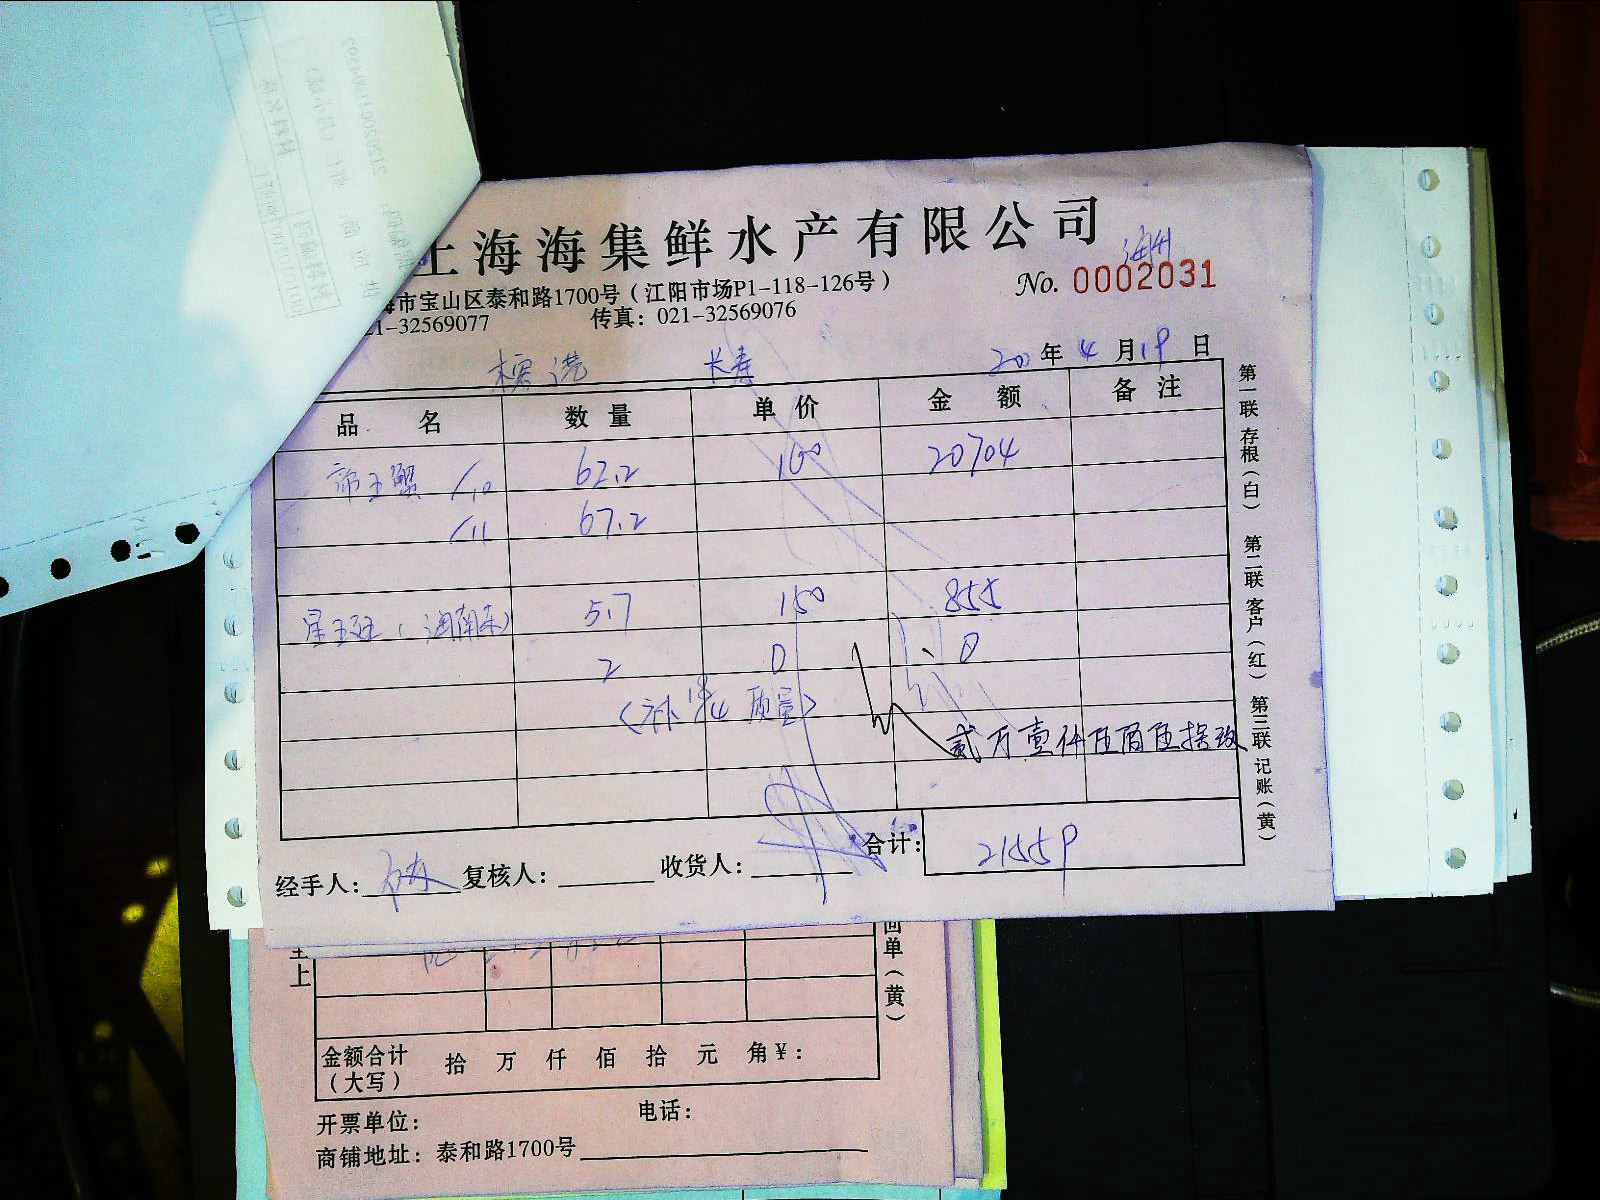 上海海集鲜水产有限公司
海州
海市宝山区泰和路1700号（江阳市场P1-118-126号）
No. 0002031
21-32569077 传真：021-32569076
长寿
年 4 月 19 日
品 名 数 量 单 价 金 额 备 注
帝王蟹 /10 62.2 160 20704
/11 67.2
5.7 150 855
2 0 0
质量
贰万壹仟伍佰伍拾玖
合计： 21559
经手人： 复核人： 收货人：
第一联 存根（白） 第二联 客户（红） 第三联 记账（黄）
回单（黄）
上
金额合计（大写） 拾 万 仟 佰 拾 元 角 ¥：
开票单位： 电话：
商铺地址：泰和路1700号